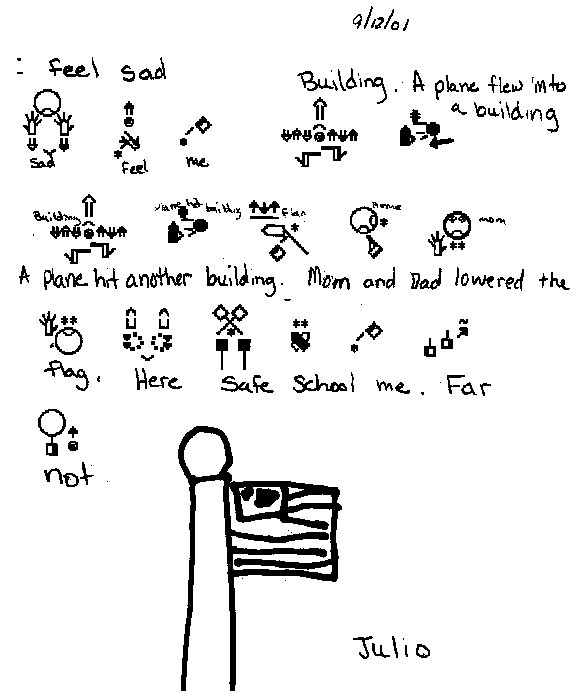 9/12/01
I feel sad
Building. A plane flew into
a building
Sad feel me
Building Plane hit building flag home mom
A plane hit another building. Mom and Dad lowered the
flag. Here Safe School me. Far
not
Julio